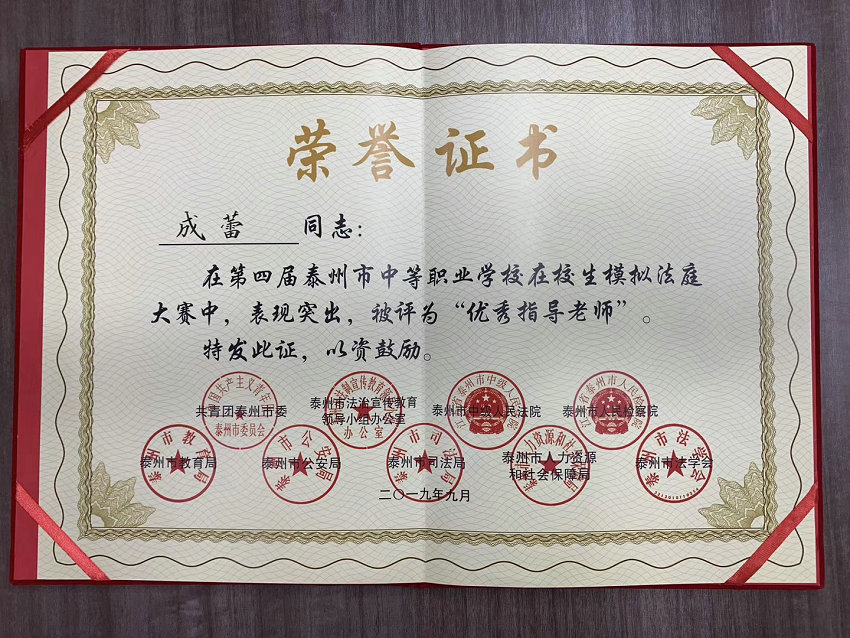 荣誉证书
成蕾 同志：
在第四届泰州市中等职业学校在校生模拟法庭
大赛中，表现突出，被评为“优秀指导老师”。
特发此证，以资鼓励。
共青团泰州市委 泰州市法治宣传教育领导小组办公室 泰州市中级人民法院 泰州市人民检察院
泰州市教育局 泰州市公安局 泰州市司法局 泰州市人力资源和社会保障局 泰州市法学会
二〇一九年九月